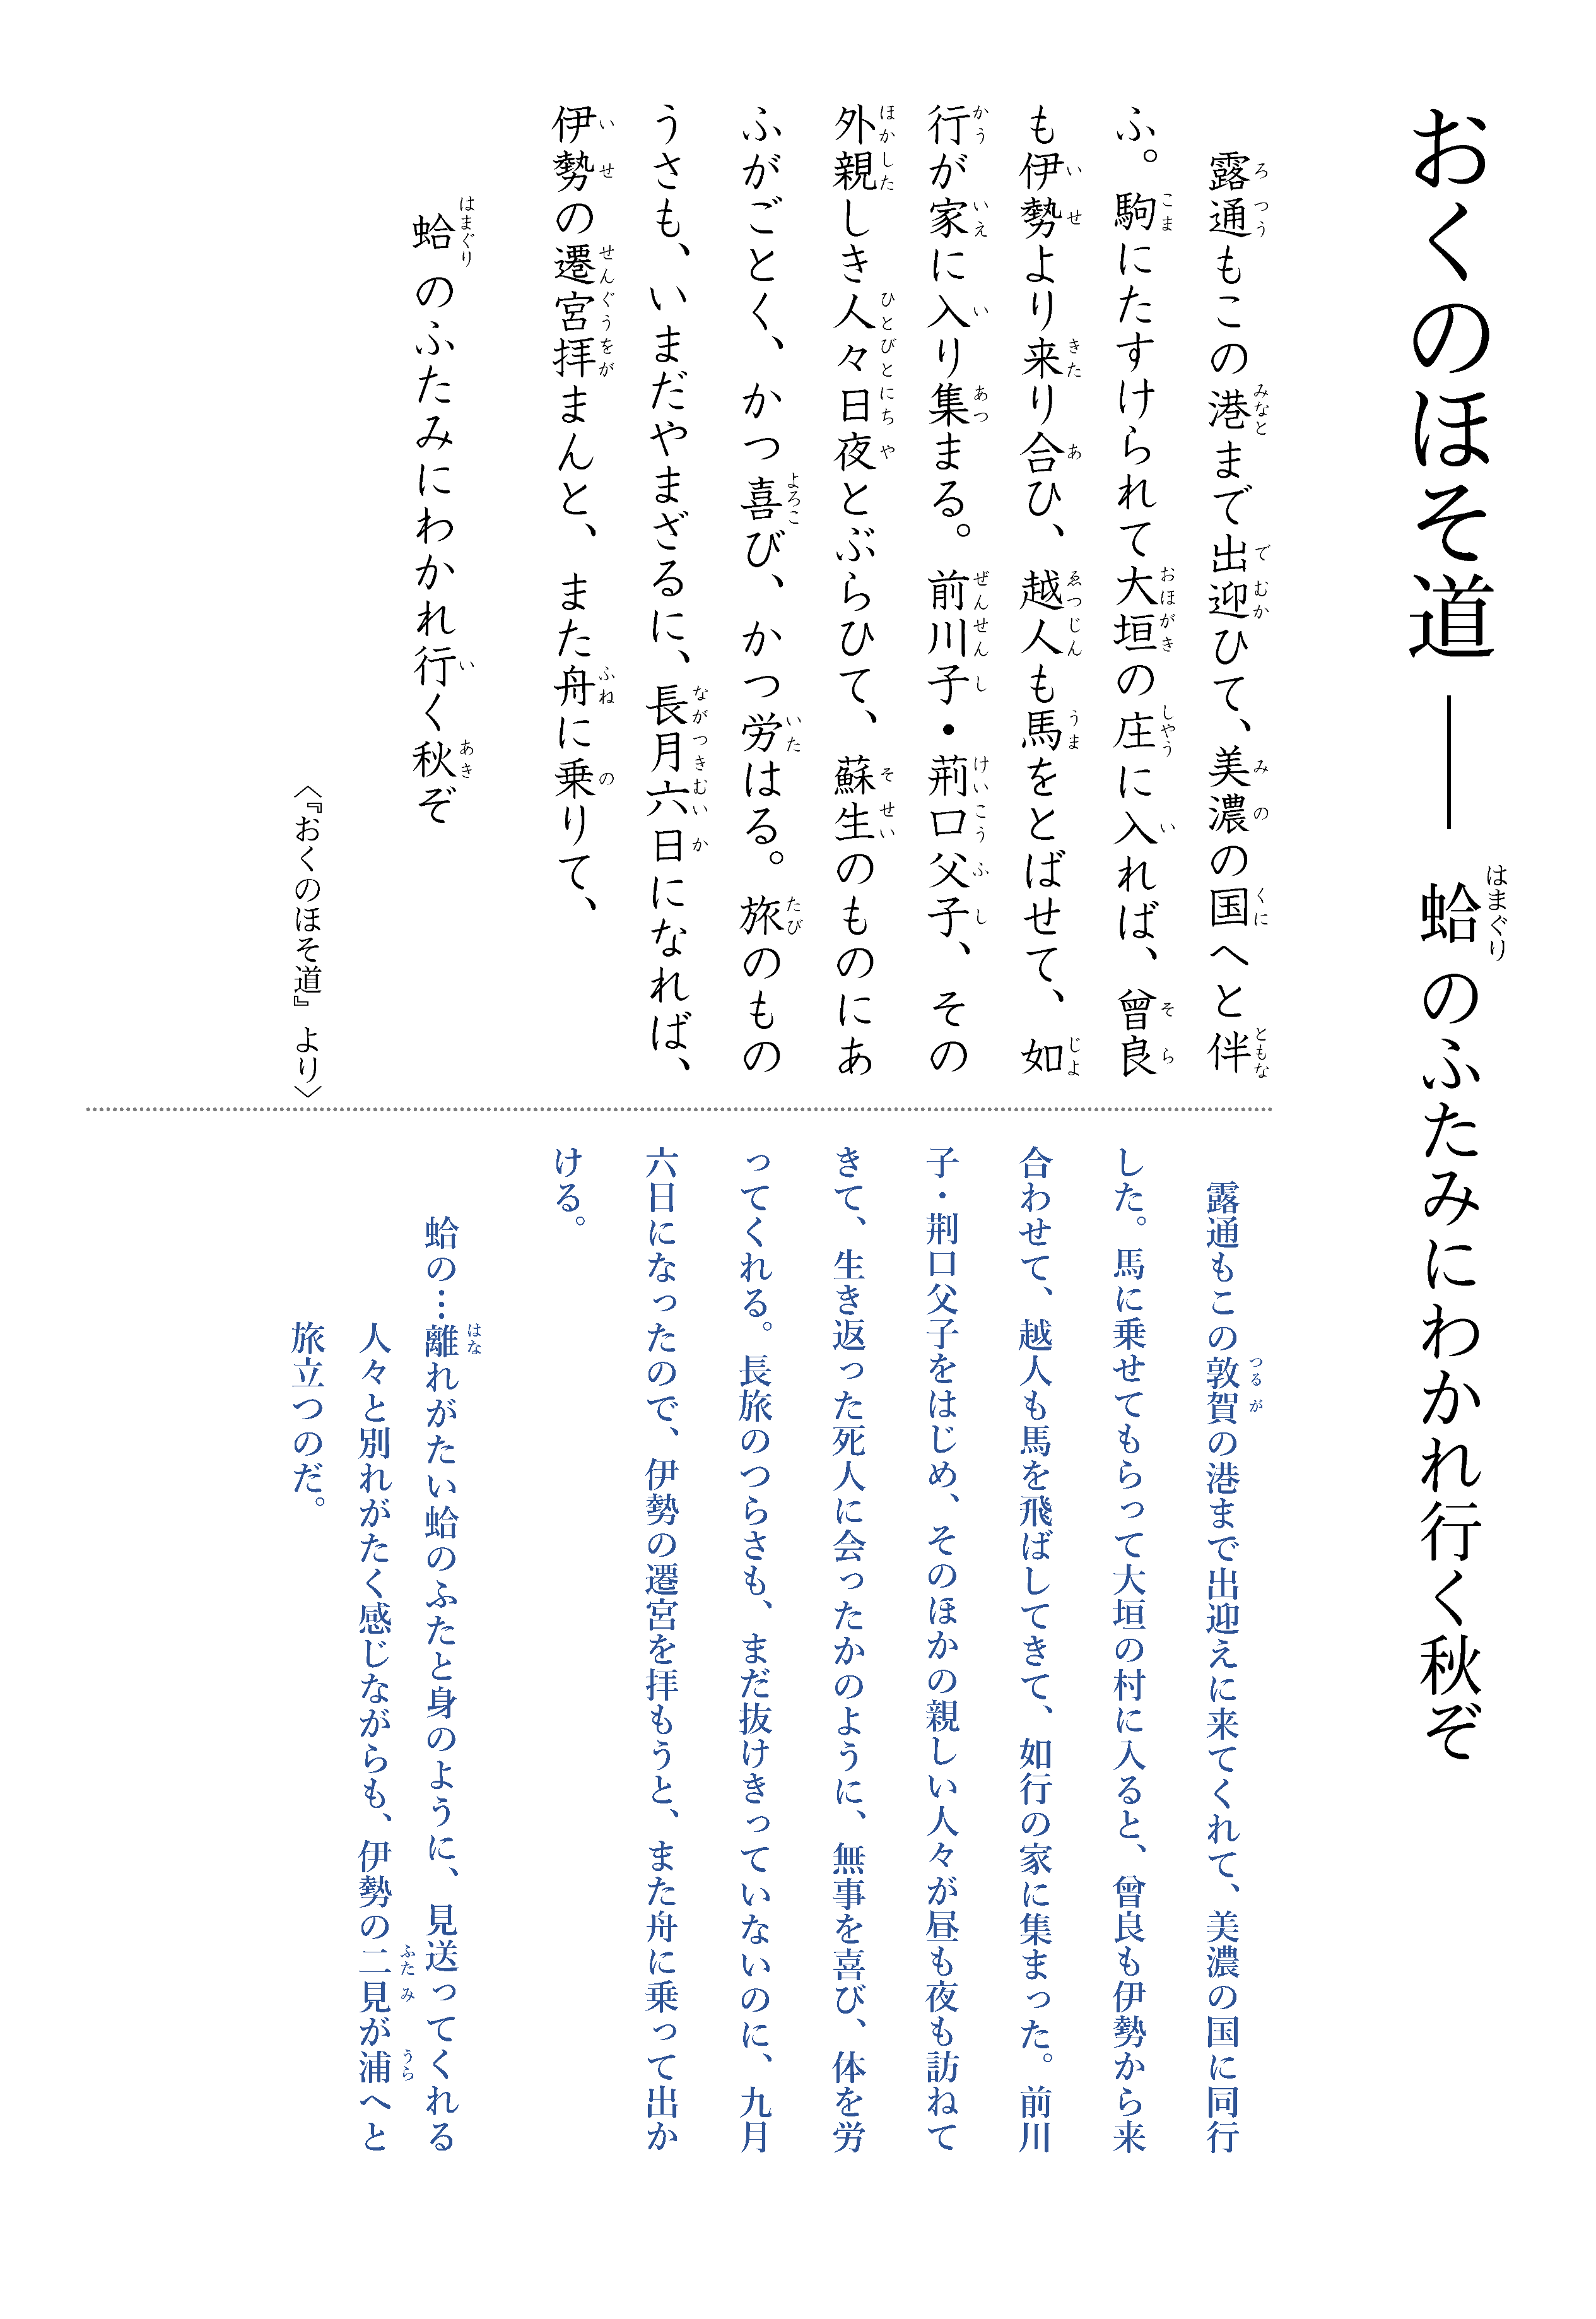 おくのほそ道――蛤のふたみにわかれ行く秋ぞ
露通もこの港まで出迎ひて、美濃の国へと伴
ふ。駒にたすけられて大垣の庄に入れば、曾良
も伊勢より来り合ひ、越人も馬をとばせて、如
行が家に入り集まる。前川子・荊口父子、その
外親しき人々日夜とぶらひて、蘇生のものにあ
ふがごとく、かつ喜び、かつ労はる。旅のもの
うさも、いまだやまざるに、長月六日になれば、
伊勢の遷宮拝まんと、また舟に乗りて、
蛤のふたみにわかれ行く秋ぞ
〈『おくのほそ道』より〉
露通もこの敦賀の港まで出迎えに来てくれて、美濃の国に同行
した。馬に乗せてもらって大垣の村に入ると、曾良も伊勢から来
合わせて、越人も馬を飛ばしてきて、如行の家に集まった。前川
子・荊口父子をはじめ、そのほかの親しい人々が昼も夜も訪ねて
きて、生き返った死人に会ったかのように、無事を喜び、体を労
ってくれる。長旅のつらさも、まだ抜けきっていないのに、九月
六日になったので、伊勢の遷宮を拝もうと、また舟に乗って出か
ける。
蛤の…離れがたい蛤のふたと身のように、見送ってくれる
人々と別れがたく感じながらも、伊勢の二見が浦へと
旅立つのだ。